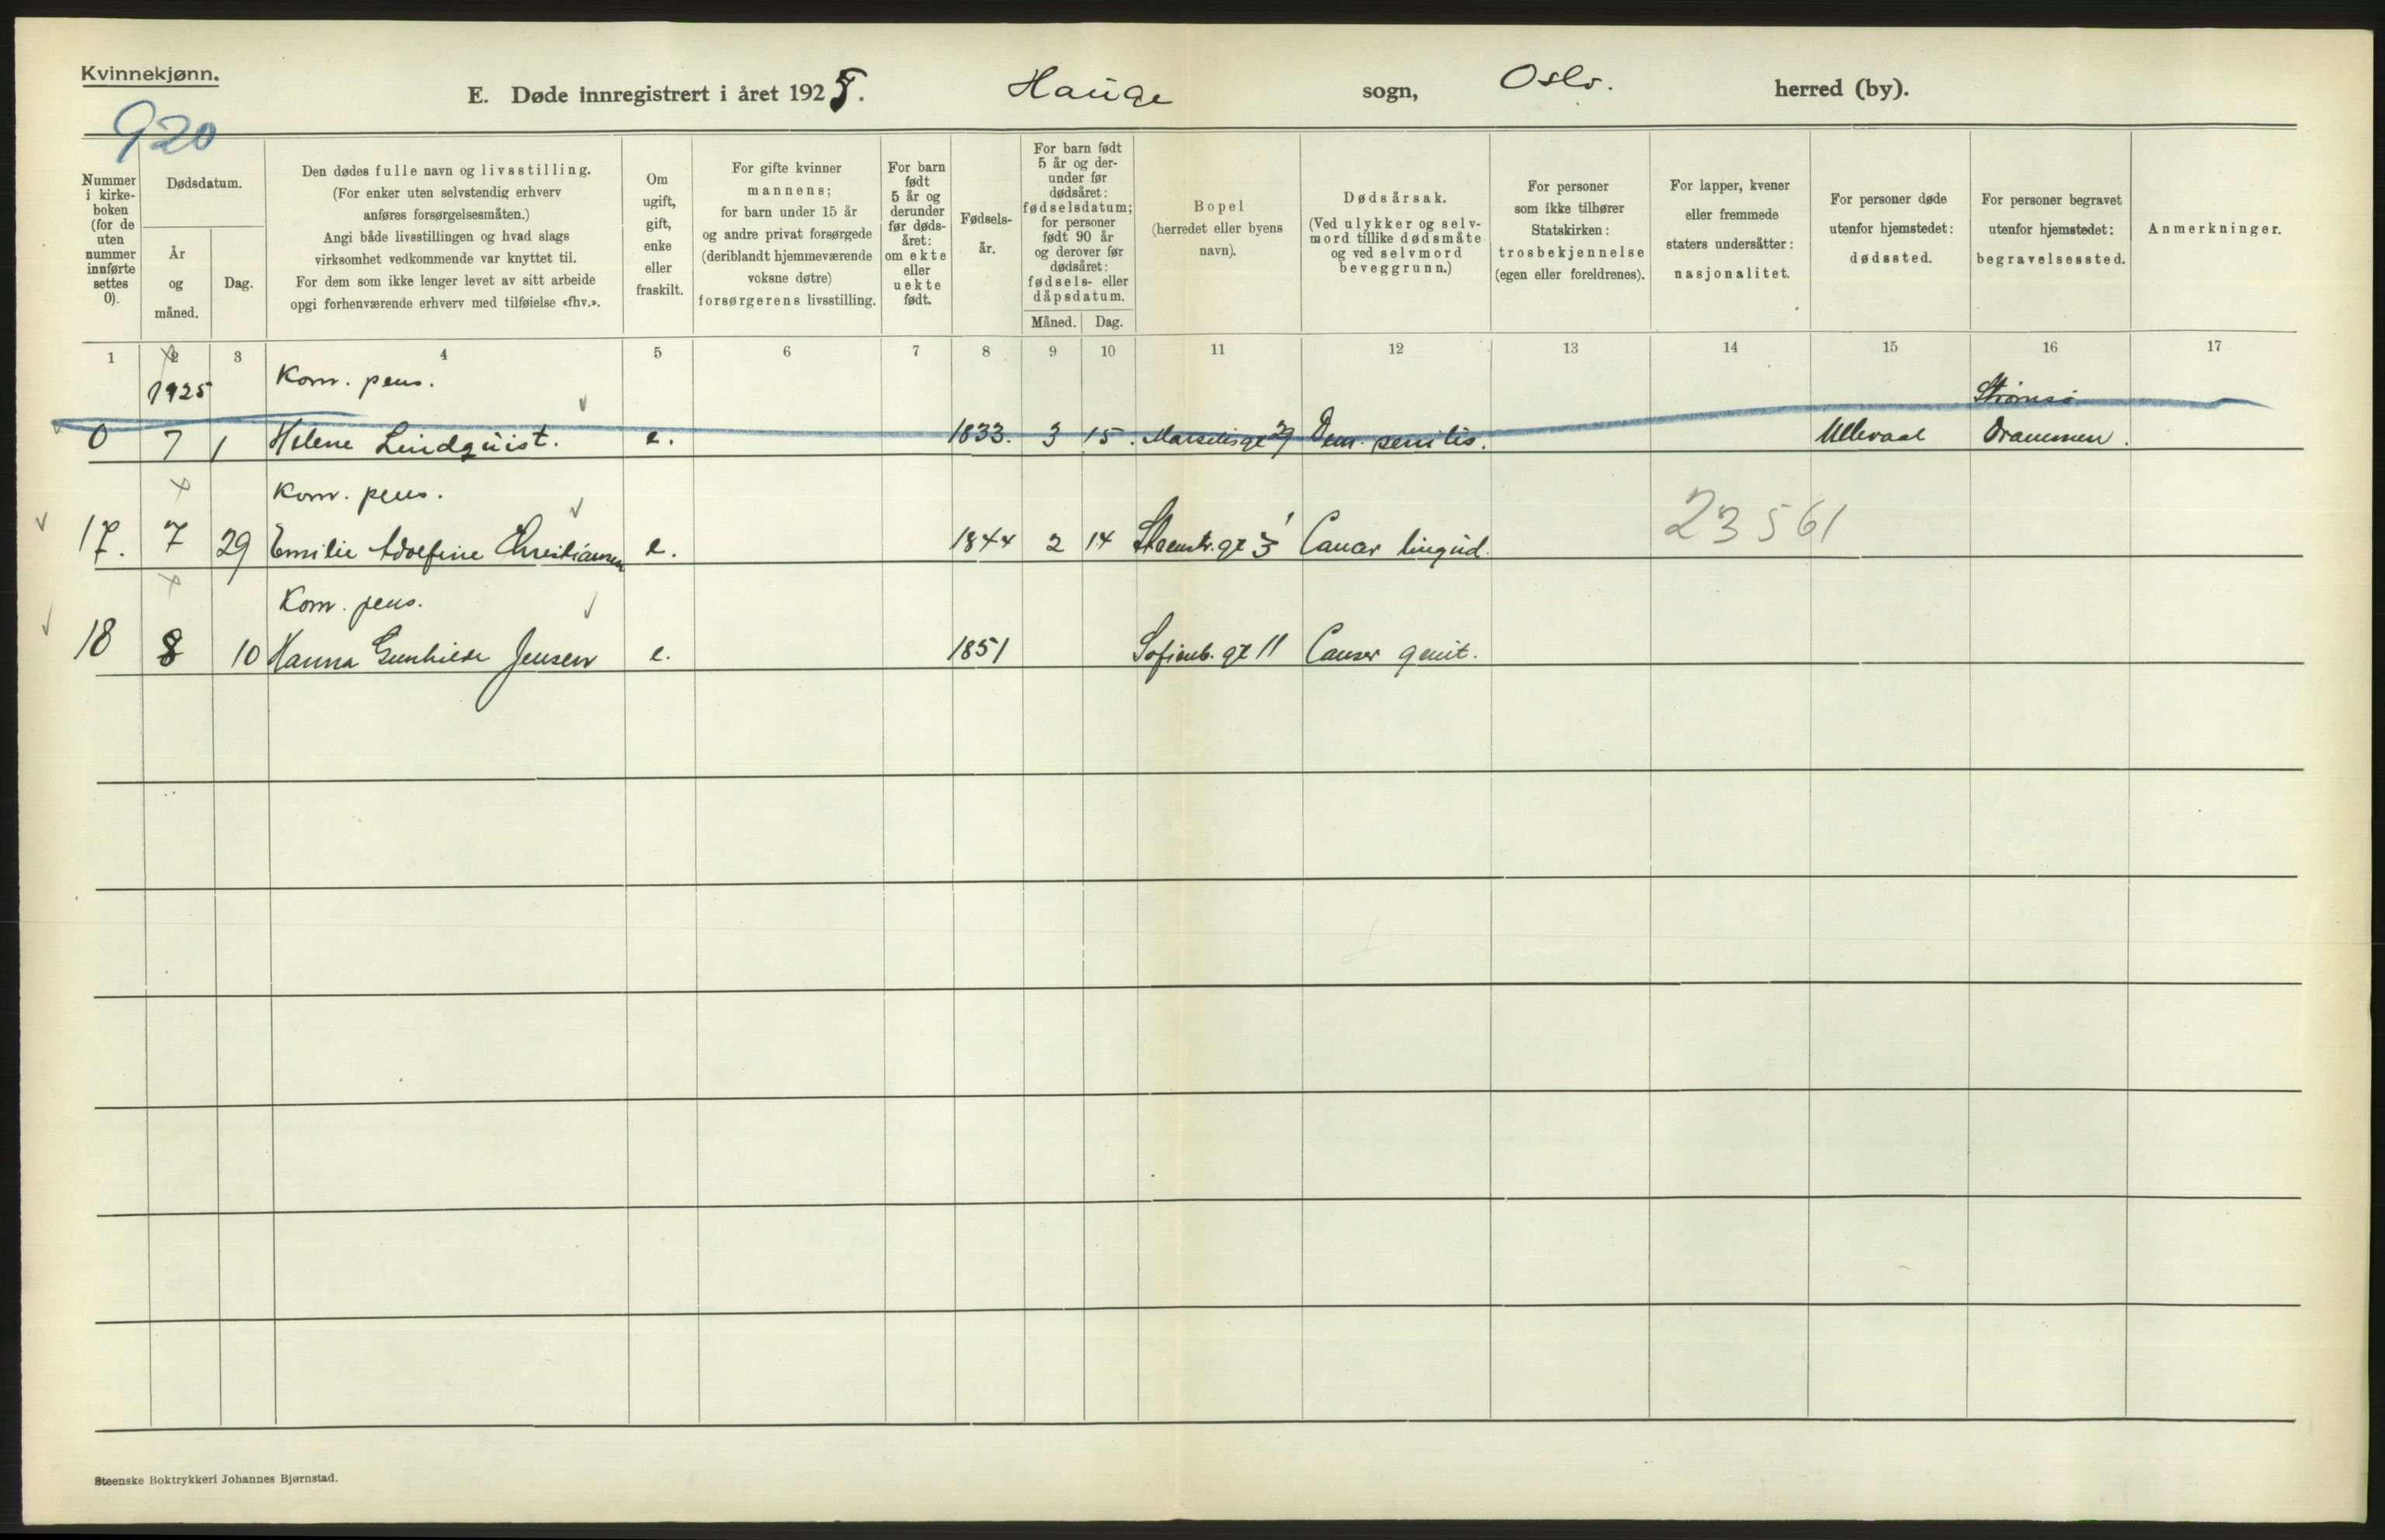 Kvinnekjønn.
E. Døde innregistrert i året 1925. Hauge sogn, Oslo. herred (by).
920
Nummer i kirke-boken (for de uten nummer innførte settes 0).
Dødsdatum.
År og måned.
Dag.
Den dødes fulle navn og livsstilling.
(For enker uten selvstendig erhverv
anføres forsørgelsesmåten.)
Angi både livsstillingen og hvad slags
virksomhet vedkommende var knyttet til.
For dem som ikke lenger levet av sitt arbeide
opgi forhenværende erhverv med tilføielse «fhv.».
Om
ugift,
gift,
enke
eller
fraskilt.
For gifte kvinner
mannens;
for barn under 15 år
og andre privat forsørgede
(deriblandt hjemmeværende
voksne døtre)
forsørgerens livsstilling.
For barn
født
5 år og
derunder
før døds-
året:
om ekte
eller
uekte
født.
Fødsels-
år.
For barn født
5 år og der-
under før
dødsåret:
fødselsdatum;
for personer
født 90 år
og derover før
dødsåret:
fødsels- eller
dåpsdatum.
Måned. Dag.
Bopel
(herredet eller byens
navn).
Dødsårsak.
(Ved ulykker og selv-
mord tillike dødsmåte
og ved selvmord
beveggrunn.)
For personer
som ikke tilhører
Statskirken:
trosbekjennelse
(egen eller foreldrenes).
For lapper, kvener
eller fremmede
staters undersåtter:
nasjonalitet.
For personer døde
utenfor hjemstedet:
dødssted.
For personer begravet
utenfor hjemstedet:
begravelsessted.
Anmerkninger.
1 2 3 4 5 6 7 8 9 10 11 12 13 14 15 16 17
1925 Kom. pens. Strømsø
0 7 1 Helene Lindquist. e. 1833. 3 15. Marselisgt 29 Dem. senilis. Ullevaal Drammen.
Kom. pens.
17. 7 29 Emilie Adolfine Christiansen e. 1844 2 14 Steenstr. gt 3 Cancer 23561
Kom. pens.
18 8 10 Hanna Gunhilde Jensen e. 1851 Sofienb. gt 11 Cancer genit.
Steenske Boktrykkeri Johannes Bjørnstad.